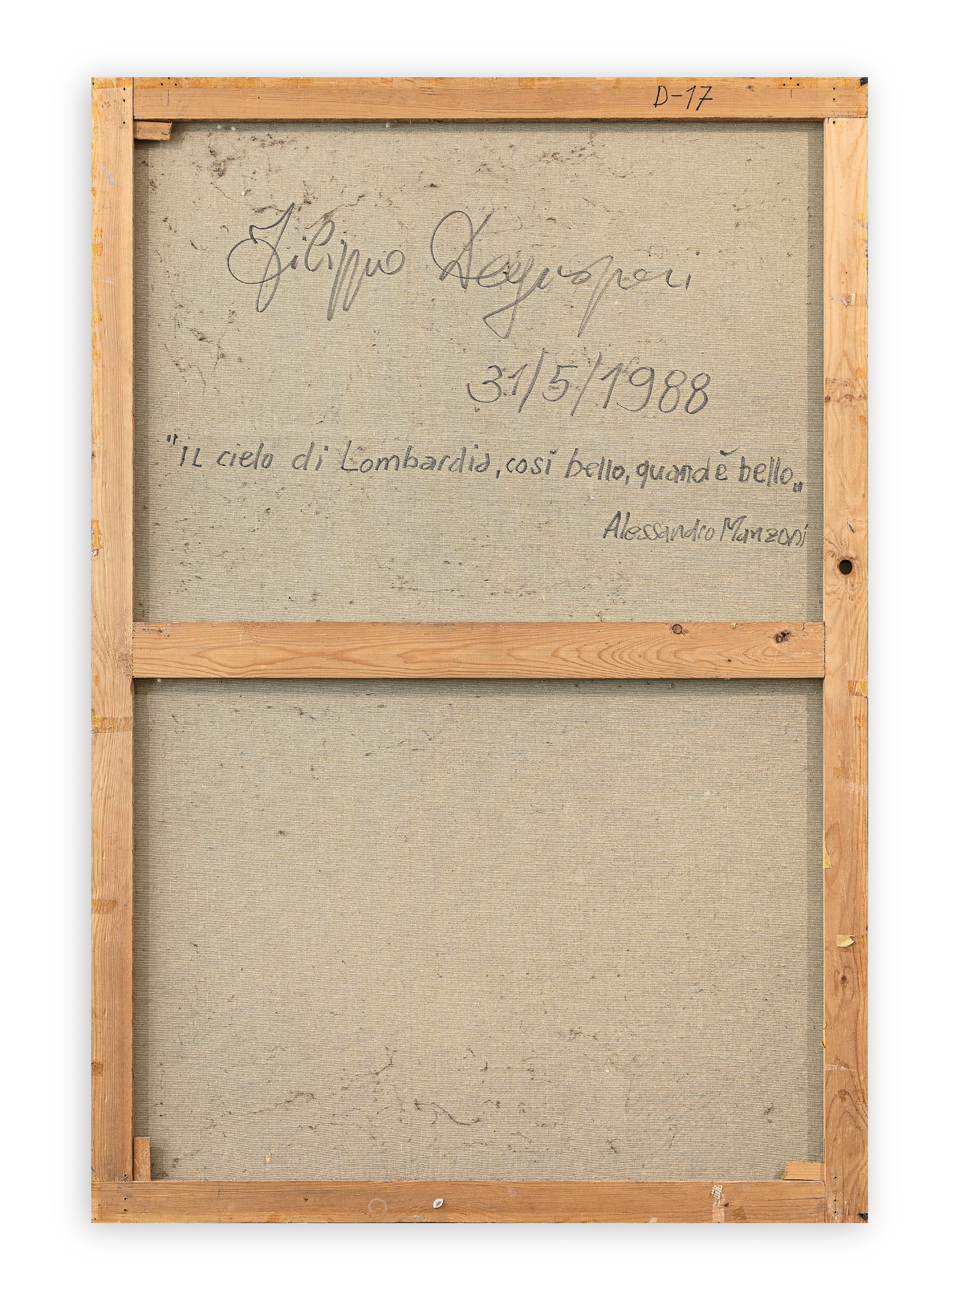 D-17
Filippo Degasperi
31/5/1988
"IL cielo di Lombardia, così bello, quand è bello"
Alessandro Manzoni